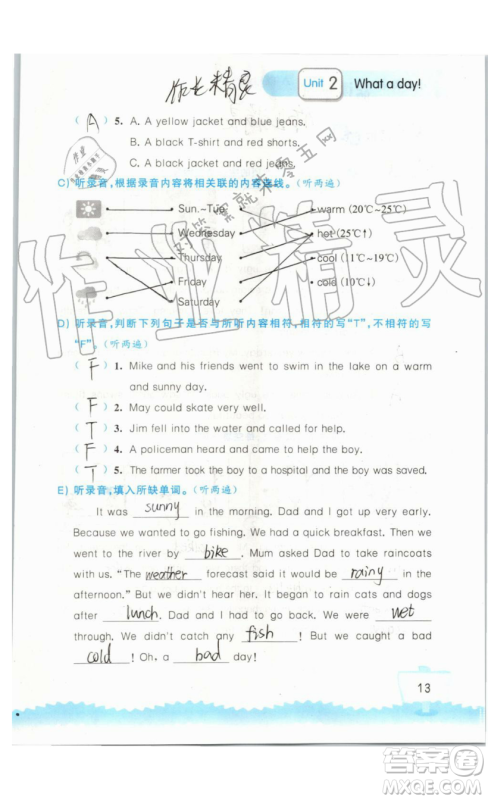 作业精灵
Unit 2 What a day!
( A ) 5. A. A yellow jacket and blue jeans.
B. A black T-shirt and red shorts.
C. A black jacket and red jeans.
C) 听录音,根据录音内容将相关联的内容连线。(听两遍)
Sun.~Tue. warm (20℃~25℃)
Wednesday hot (25℃↑)
Thursday cool (11℃~19℃)
Friday cold (10℃↓)
Saturday
D) 听录音,判断下列句子是否与所听内容相符,相符的写"T",不相符的写
"F"。(听两遍)
( F ) 1. Mike and his friends went to swim in the lake on a warm
and sunny day.
( F ) 2. May could skate very well.
( T ) 3. Jim fell into the water and called for help.
( F ) 4. A policeman heard and came to help the boy.
( T ) 5. The farmer took the boy to a hospital and the boy was saved.
E) 听录音,填入所缺单词。(听两遍)
It was sunny in the morning. Dad and I got up very early.
Because we wanted to go fishing. We had a quick breakfast. Then
we went to the river by bike. Mum asked Dad to take raincoats
with us. "The weather forecast said it would be rainy in the
afternoon." But we didn't hear her. It began to rain cats and dogs
after lunch. Dad and I had to go home. We were wet
through. We didn't catch any fish! But we caught a bad
cold! Oh, a bad day!
13
作业精灵
作业
答案圈
MXQE.COM